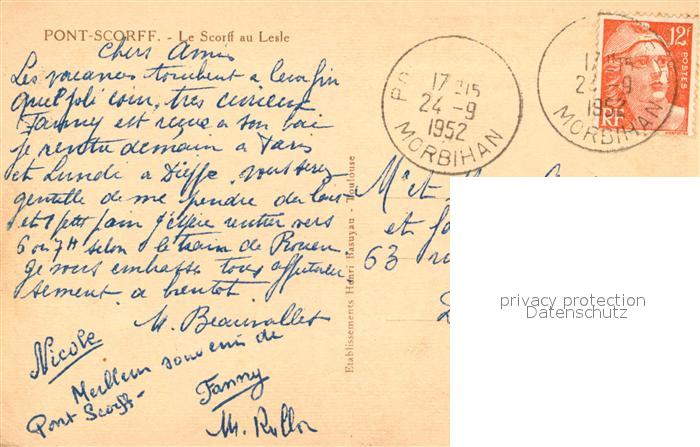 PONT-SCORFF. - Le Scorff au Lesle
Chers Amis
Les vacances tombent a leur fin
quel joli coin, très curieux
Fanny est reçue a son bac
je rentre demain a Paris
et Lundi a Dieppe. vous serez
gentille de me prendre du lait
et 1 petit pain j'espère rentrer vers
6 ou 7H selon le train de Rouen
Je vous embrasse tous affectueu
sement a bientot.
M. Beauvallet
Nicole
Meilleurs souvenirs de
Pont Scorff-
Fanny
M. Rullon
Etablissements Henri Basuyau - Toulouse
17 H15
24 -9
1952
MORBIHAN
17 H15
24 -9
1952
MORBIHAN
12F
POSTES
RF
Mr et
et
63
privacy protection
Datenschutz